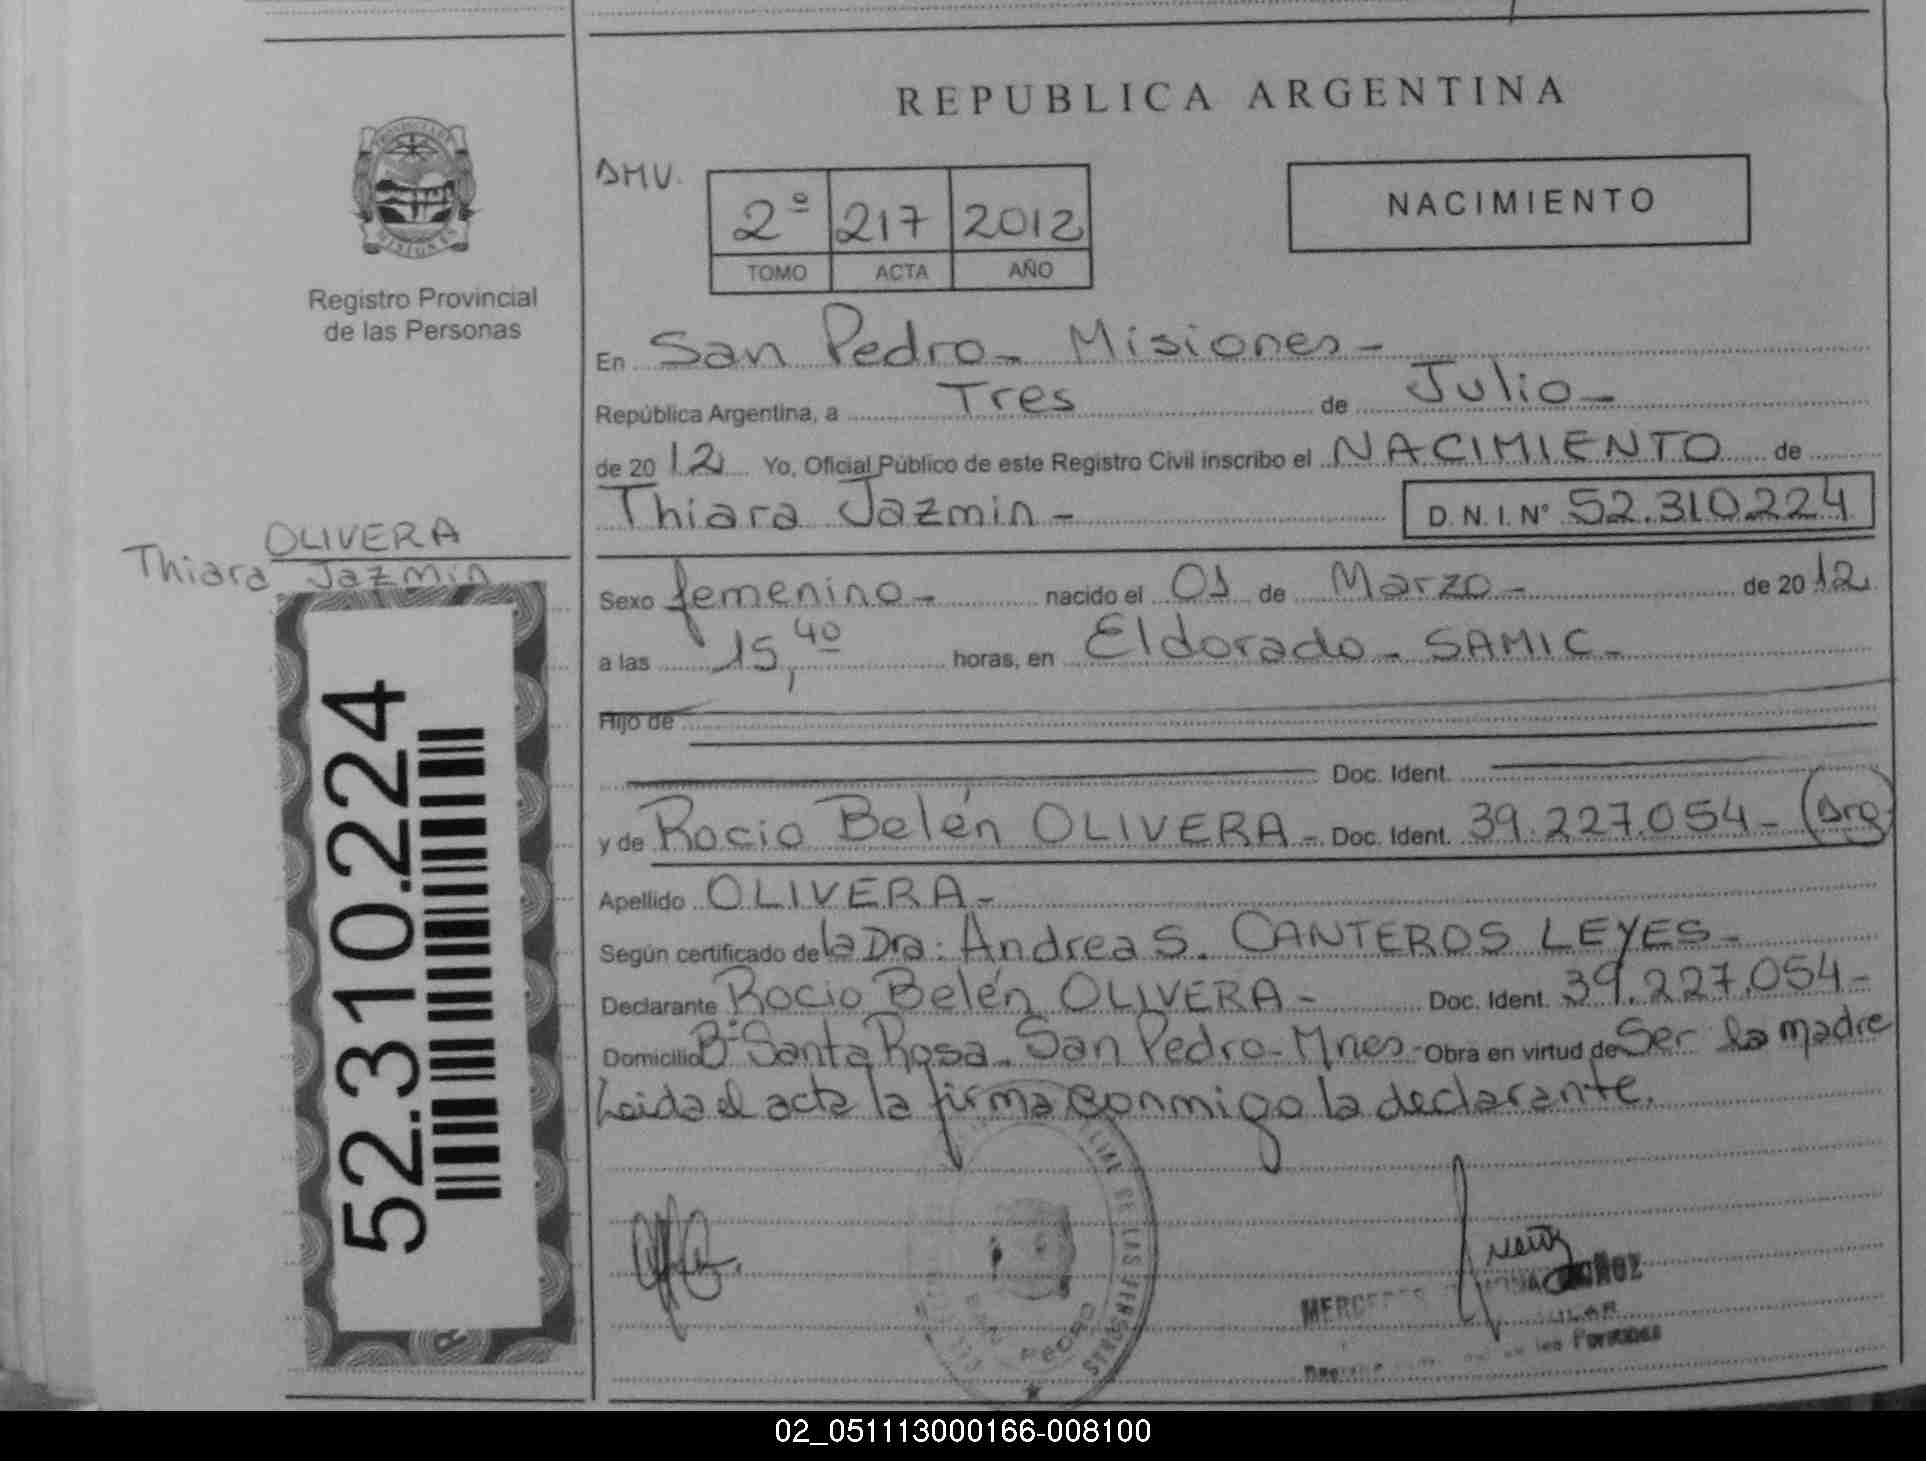 REPUBLICA ARGENTINA
PROVINCIA DE
MISIONES
Registro Provincial
de las Personas
DMV.
2º 217 2012
TOMO ACTA AÑO
NACIMIENTO
En San Pedro - Misiones -
República Argentina, a Tres de Julio -
de 2012 Yo, Oficial Público de este Registro Civil inscribo el NACIMIENTO de
Thiara Jazmin - D.N.I. N° 52.310.224
OLIVERA
Thiara Jazmin
52.310.224
Sexo femenino - nacido el 01 de Marzo - de 2012
a las 15,40 horas, en Eldorado - SAMIC -
Hijo de
Doc. Ident.
y de Rocio Belén OLIVERA - Doc. Ident. 39.227.054 - (Arg)
Apellido OLIVERA -
Según certificado de la Dra: Andrea S. CANTEROS LEYES -
Declarante Rocio Belén OLIVERA - Doc. Ident. 39.227.054 -
Domicilio Bº Santa Rosa - San Pedro - Mnes - Obra en virtud de Ser la madre
Leida el acta la firma conmigo la declarante.
DE LAS PERSONAS
SAN PEDRO
MERCEDES
las Personas
02_051113000166-008100